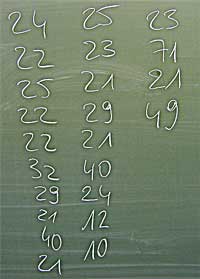 24 25 23
22 23 71
25 21 21
22 29 49
22 21
32 40
29 24
21 12
40 10
21